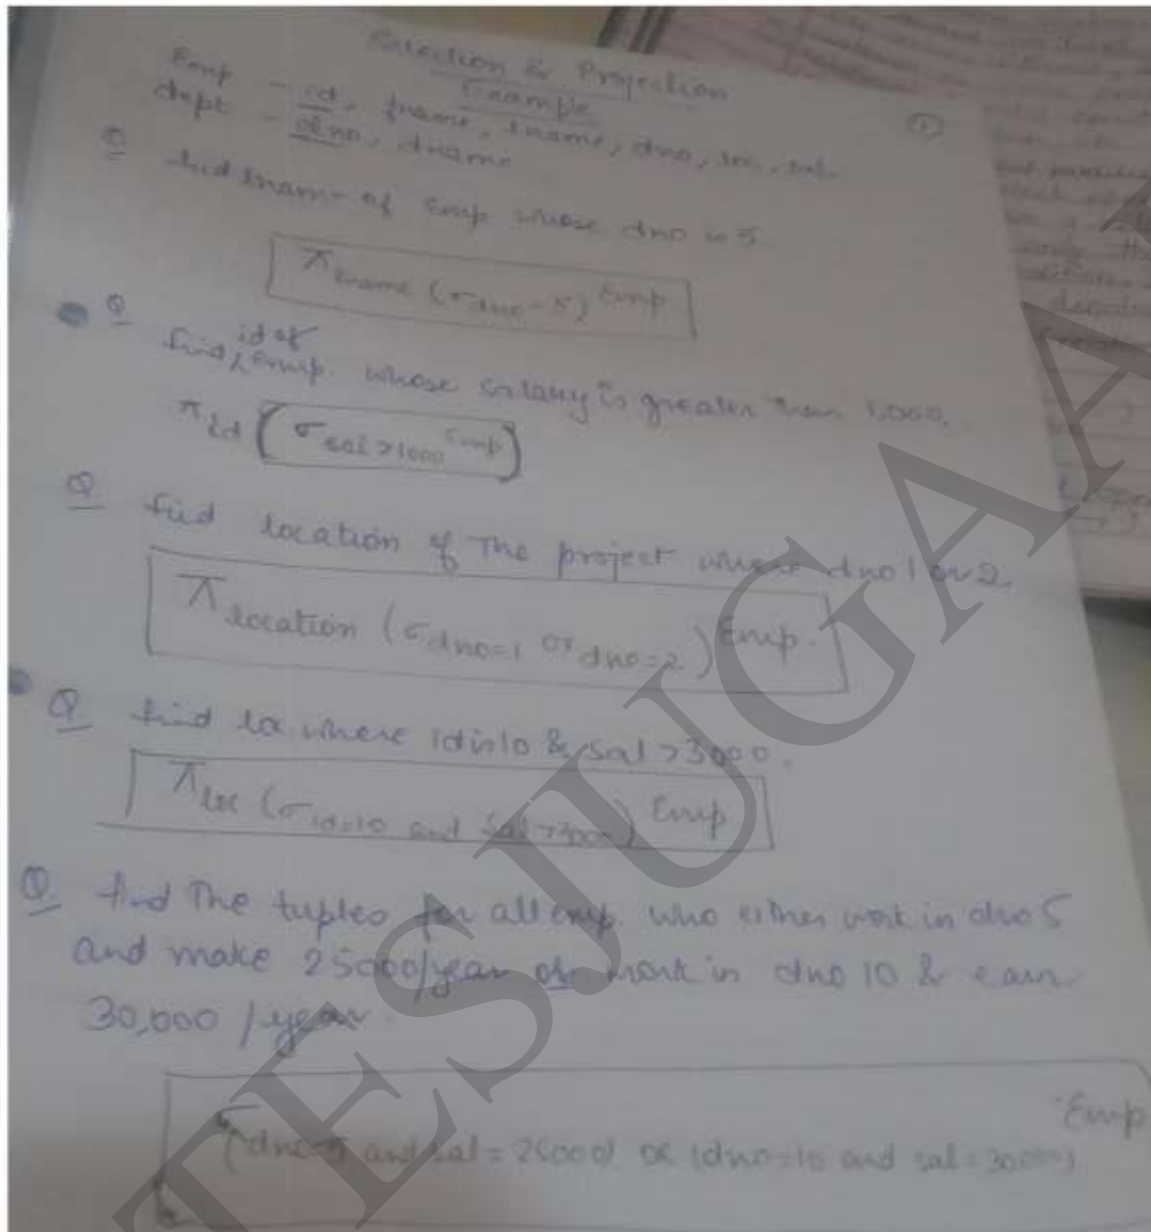 Selection & Projection
Example
①
Emp - id, fname, lname, dno, loc, sal.
dept - dno, dname
Q find lname of Emp whose dno is 5
π lname (σ dno = 5) Emp
id of
Q find ^ emp. whose salary is greater than 1000.
π id (σ sal > 1000 Emp)
Q find location of The project where dno 1 or 2.
π location (σ dno=1 or dno=2) Emp.
Q find loc where id is 10 & sal > 3000.
π loc (σ id=10 and sal > 3000) Emp
Q find The tuples for all emp. who either work in dno 5
and make 25000/year or work in dno 10 & earn
30,000 / year
σ Emp
(dno=5 and sal = 25000) or (dno=10 and sal = 30000)
TESJUGAA